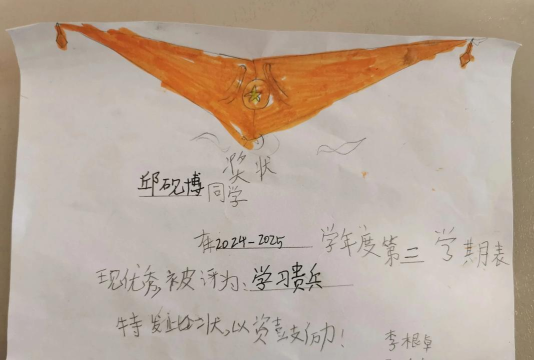 奖状
邱砚博同学
在2024-2025学年度第三学期表
现优秀被评为:学习贵兵
特发此状,以资鼓励!
李根卓